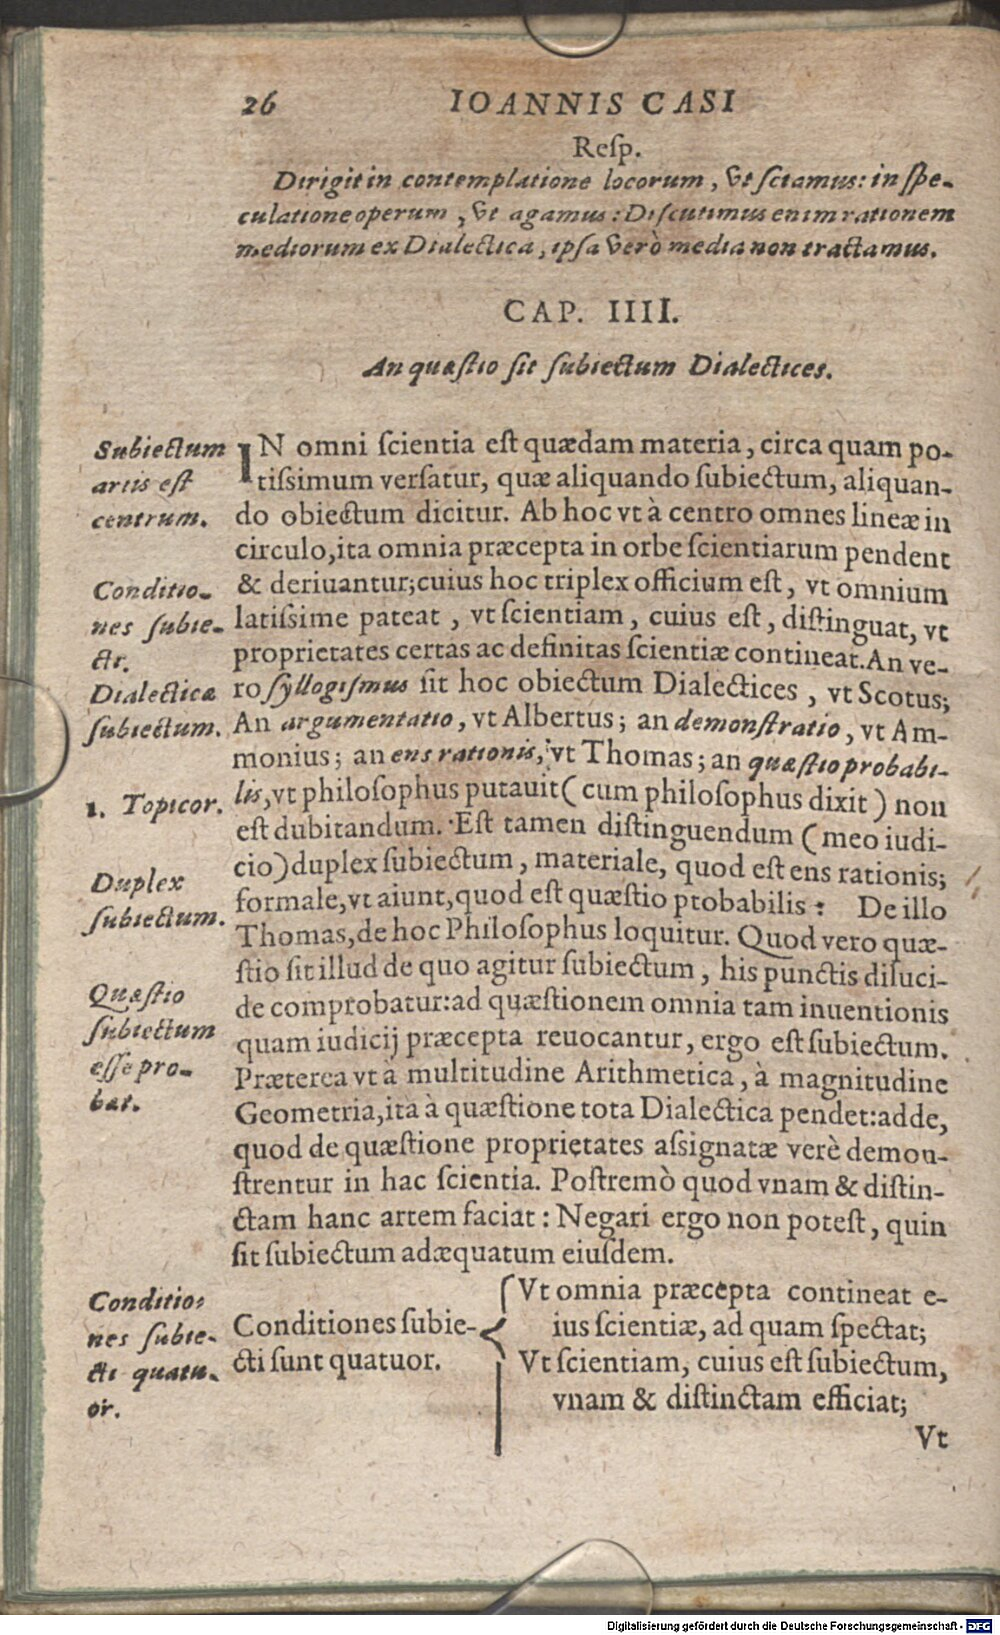 26 IOANNIS CASI
Resp.
Dirigit in contemplatione locorum, vt sciamus: in spe-
culatione operum, vt agamus: Discutimus enim rationem
mediorum ex Dialectica, ipsa verò media non tractamus.
CAP. IIII.
An quæstio sit subiectum Dialectices.
Subiectum
artis est
centrum.
Conditio-
nes subie-
cti.
Dialecticæ
subiectum.
1. Topicor.
Duplex
subiectum.
Quæstio
subiectum
esse pro-
bat.
Conditio-
nes subie-
cti quatu-
or.
IN omni scientia est quædam materia, circa quam po-
tissimum versatur, quæ aliquando subiectum, aliquan-
do obiectum dicitur. Ab hoc vt à centro omnes lineæ in
circulo, ita omnia præcepta in orbe scientiarum pendent
& deriuantur; cuius hoc triplex officium est, vt omnium
latissime pateat, vt scientiam, cuius est, distinguat, vt
proprietates certas ac definitas scientiæ contineat. An ve-
ro syllogismus sit hoc obiectum Dialectices, vt Scotus;
An argumentatio, vt Albertus; an demonstratio, vt Am-
monius; an ens rationis, vt Thomas; an quæstio probabi-
lis, vt philosophus putauit (cum philosophus dixit) non
est dubitandum. Est tamen distinguendum (meo iudi-
cio) duplex subiectum, materiale, quod est ens rationis;
formale, vt aiunt, quod est quæstio probabilis: De illo
Thomas, de hoc Philosophus loquitur. Quod vero quæ-
stio sit illud de quo agitur subiectum, his punctis diluci-
de comprobatur: ad quæstionem omnia tam inuentionis
quam iudicij præcepta reuocantur, ergo est subiectum.
Præterea vt à multitudine Arithmetica, à magnitudine
Geometria, ita à quæstione tota Dialectica pendet: adde,
quod de quæstione proprietates assignatæ verè demon-
strentur in hac scientia. Postremò quod vnam & distin-
ctam hanc artem faciat: Negari ergo non potest, quin
sit subiectum adæquatum eiusdem.
Conditiones subie-
cti sunt quatuor.
Vt omnia præcepta contineat e-
ius scientiæ, ad quam spectat;
Vt scientiam, cuius est subiectum,
vnam & distinctam efficiat;
Vt
Digitalisierung gefördert durch die Deutsche Forschungsgemeinschaft - DFG